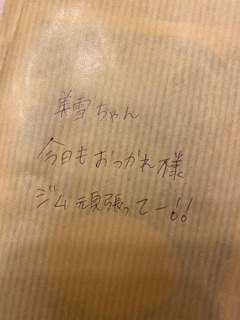 美雪ちゃん
今日もおつかれ様
ジム頑張ってー!!